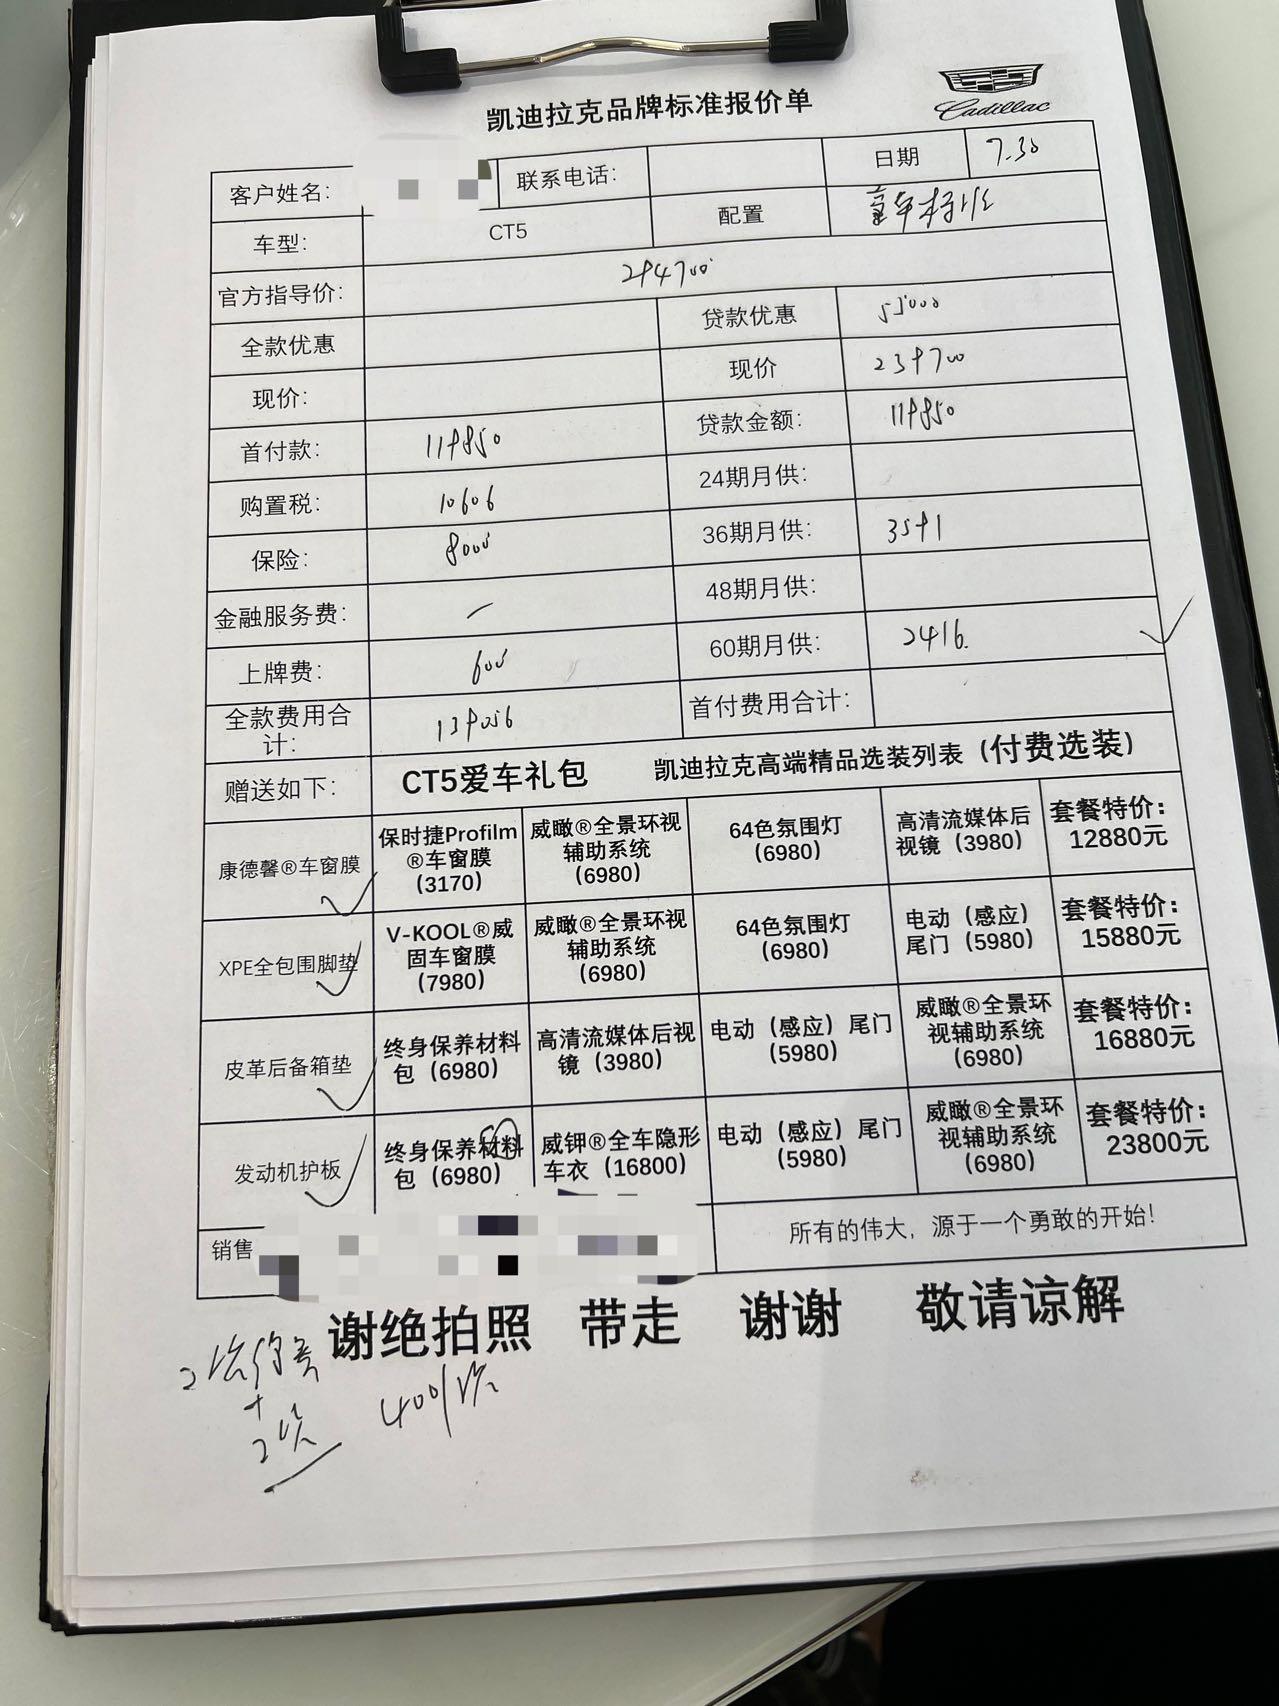 凯迪拉克品牌标准报价单
Cadillac
客户姓名:
联系电话:
日期
7.30
车型:
CT5
配置
官方指导价:
294700
全款优惠
贷款优惠
55000
现价:
现价
239700
首付款:
119850
贷款金额:
119850
购置税:
10606
24期月供:
保险:
8000
36期月供:
3591
金融服务费:
48期月供:
上牌费:
600
60期月供:
2416
全款费用合计:
139056
首付费用合计:
赠送如下:
CT5爱车礼包
凯迪拉克高端精品选装列表 (付费选装)
康德馨®车窗膜
保时捷Profilm
®车窗膜
(3170)
威瞰®全景环视
辅助系统
(6980)
64色氛围灯
(6980)
高清流媒体后
视镜 (3980)
套餐特价:
12880元
XPE全包围脚垫
V-KOOL®威
固车窗膜
(7980)
威瞰®全景环视
辅助系统
(6980)
64色氛围灯
(6980)
电动 (感应)
尾门 (5980)
套餐特价:
15880元
皮革后备箱垫
终身保养材料
包 (6980)
高清流媒体后视
镜 (3980)
电动 (感应) 尾门
(5980)
威瞰®全景环
视辅助系统
(6980)
套餐特价:
16880元
发动机护板
终身保养材料
包 (6980)
威钾®全车隐形
车衣 (16800)
电动 (感应) 尾门
(5980)
威瞰®全景环
视辅助系统
(6980)
套餐特价:
23800元
销售
所有的伟大，源于一个勇敢的开始!
谢绝拍照 带走 谢谢 敬请谅解
2次保养
+
2次
400/次